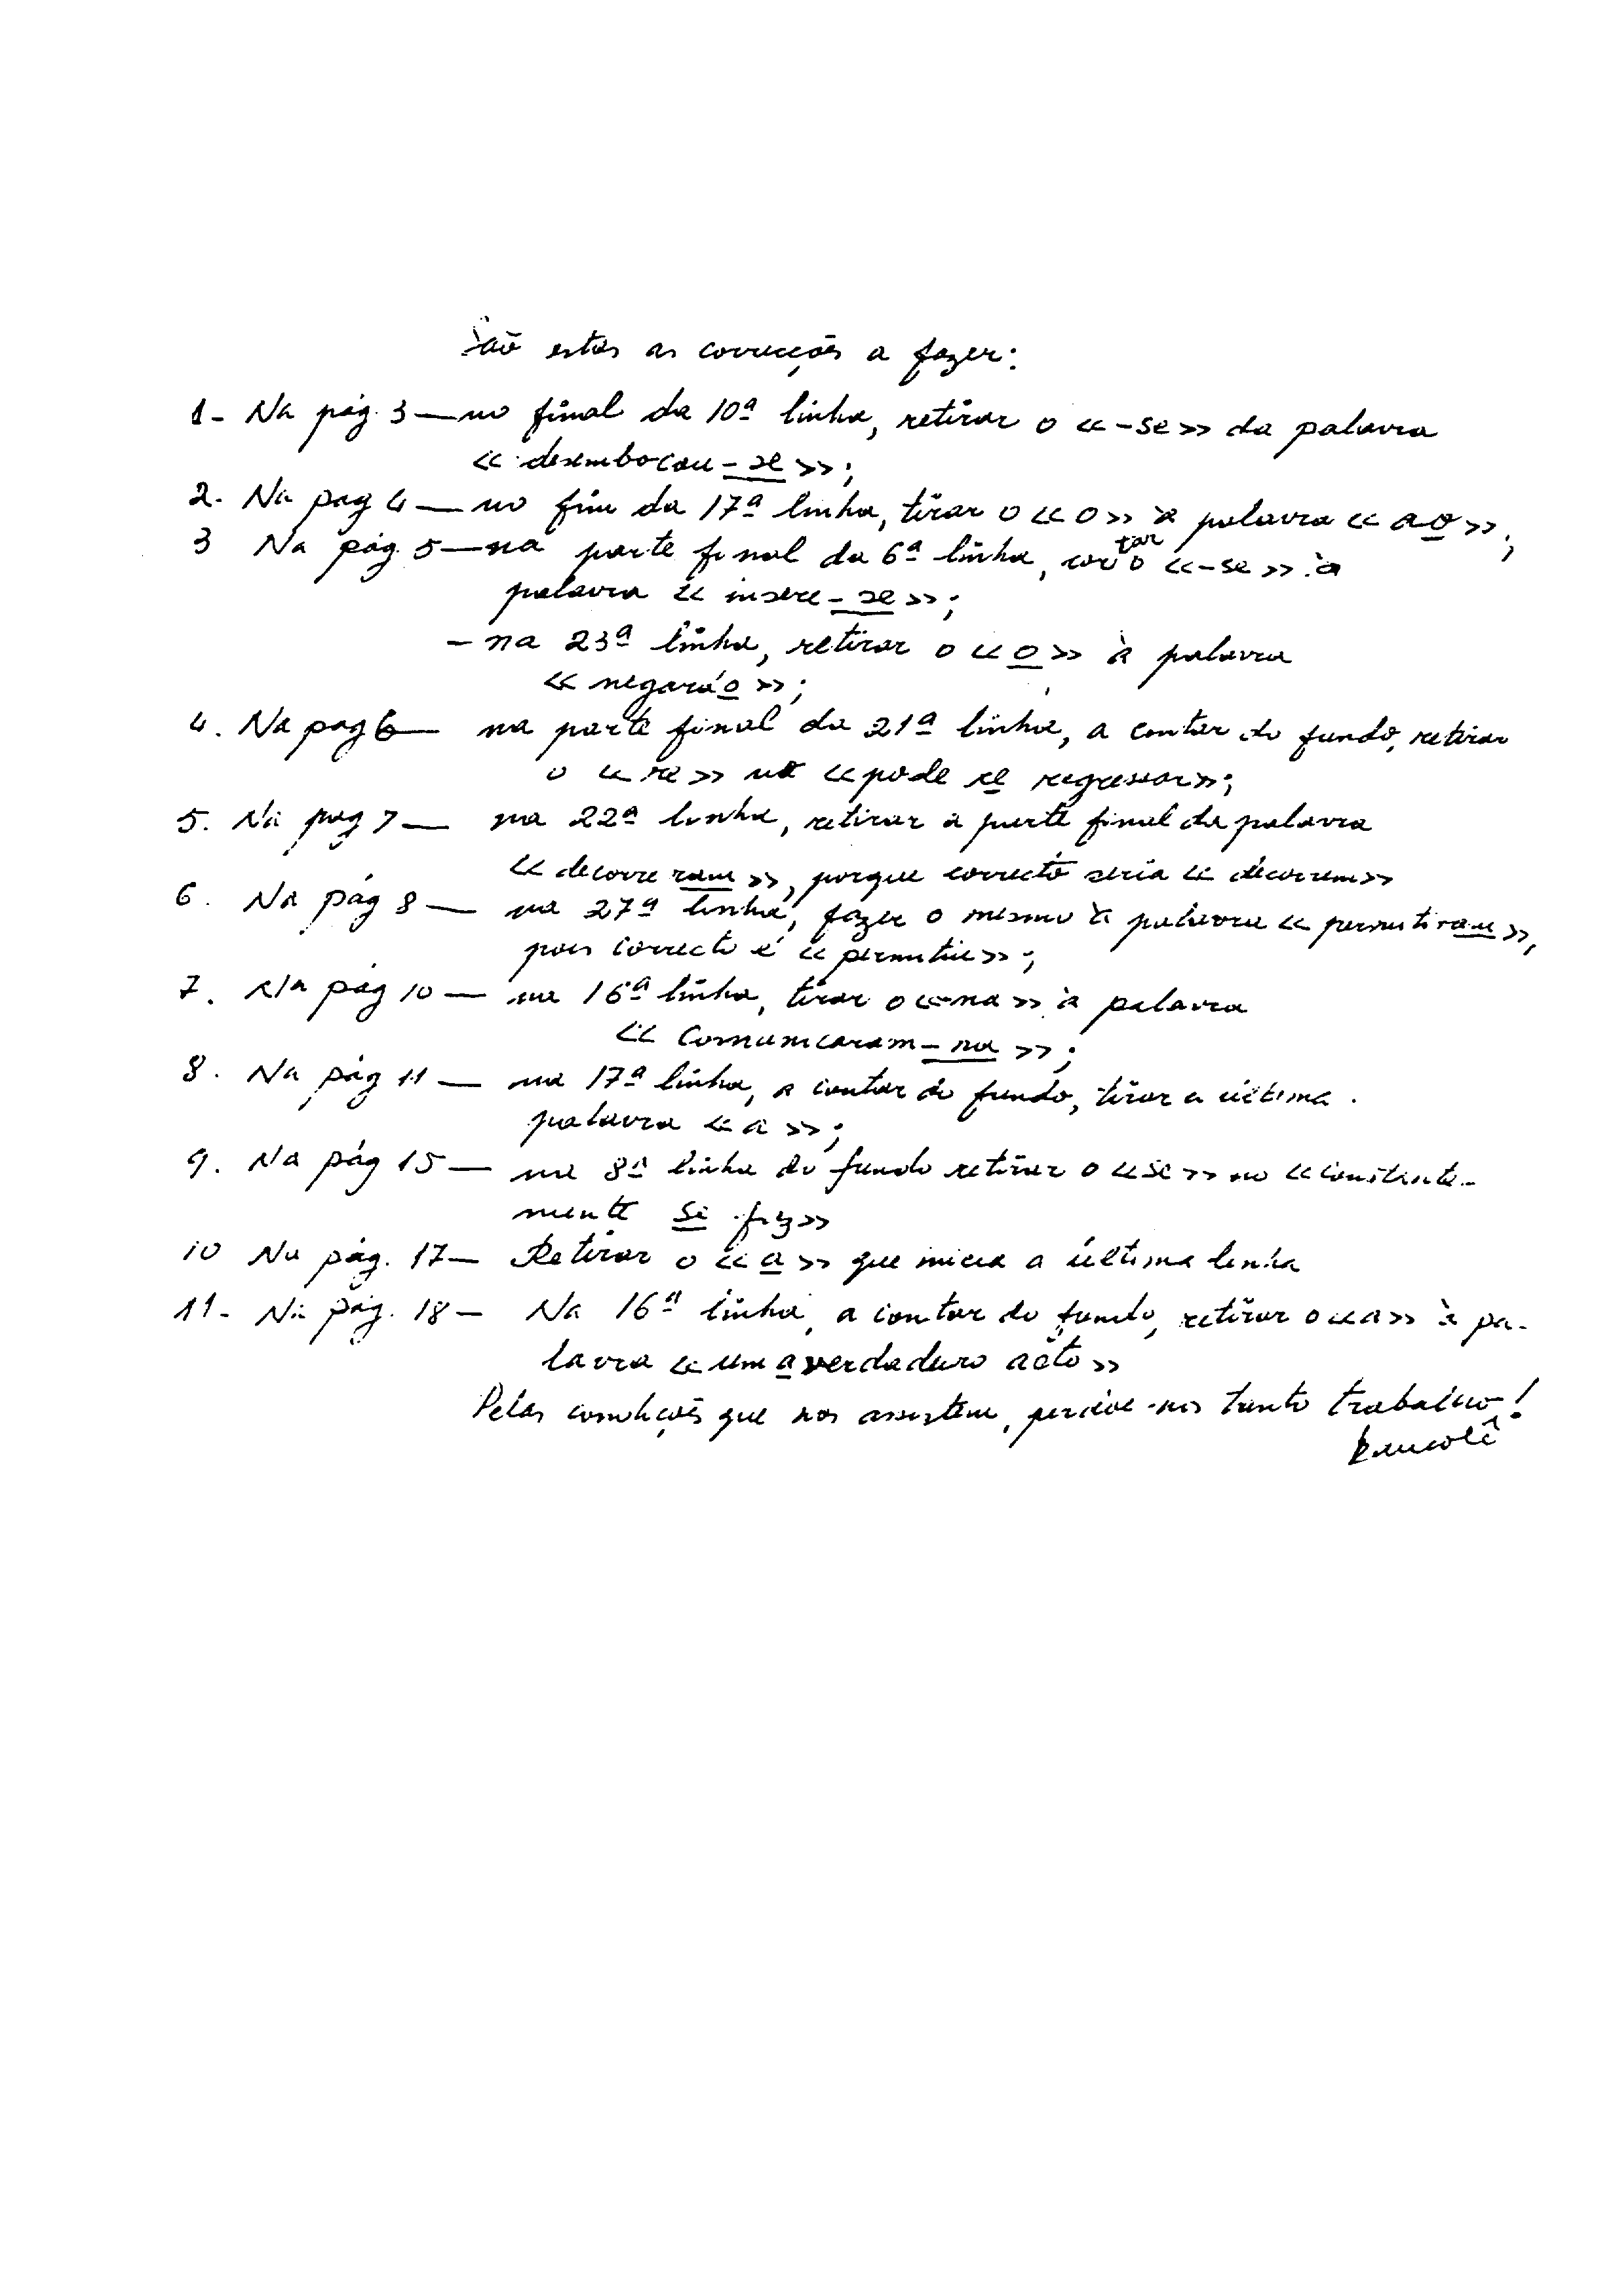 São estas as correcções a fazer:
1- Na pág. 3 — no final da 10ª linha, retirar o «-se» da palavra
«desembocou-se»;
2. Na pag 4 — no fim da 17ª linha, tirar o «o» à palavra «ao»;
3 Na pág. 5 — na parte final da 6ª linha, cortar o «-se» à
palavra «insere-se»;
- na 23ª linha, retirar o «o» à palavra
«negaráo»;
4. Na pag 6 — na parte final da 21ª linha, a contar do fundo, retirar
o «se» no «pode se regressar»;
5. Na pag 7 — na 22ª linha, retirar a parte final da palavra
«decorreram», porque correcto seria «decorrem»
6. Na pág 8 — na 27ª linha, fazer o mesmo à palavra «permitiram»,
pois correcto é «permitiu»;
7. Na pág 10 — na 16ª linha, tirar o «-na» à palavra
«comunicaram-na»;
8. Na pág 11 — na 17ª linha, a contar do fundo, tirar a última
palavra «a»;
9. Na pág 15 — na 8ª linha do fundo retirar o «se» no «constante-
mente se fez»
10 Na pág. 17 — Retirar o «a» que inicia a última linha
11- Na pág. 18 — Na 16ª linha, a contar do fundo, retirar o «a» à pa-
lavra «uma verdadeiro acto»
Pelas condições que nos assistem, perdoe-nos tanto trabalho!